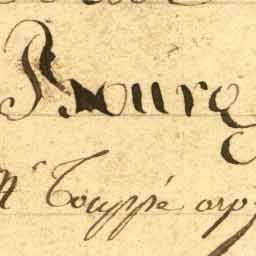 Bourg
Mr Touppé arp